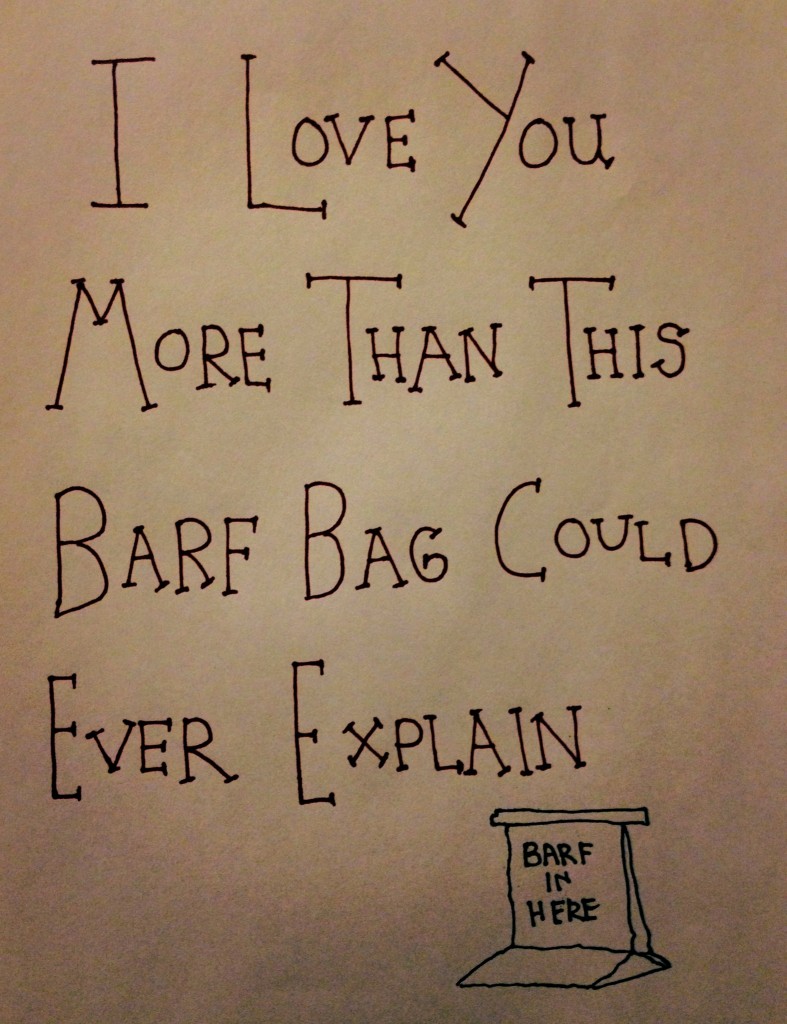 I Love You
More Than This
Barf Bag Could
Ever Explain
BARF
IN
HERE